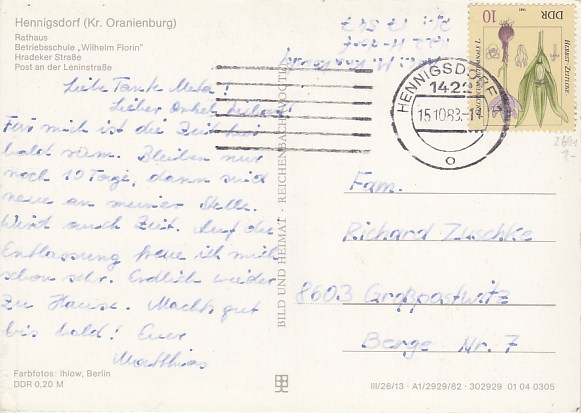 Hennigsdorf (Kr. Oranienburg)
Rathaus
Betriebsschule „Wilhelm Florin"
Hradeker Straße
Post an der Leninstraße
Liebe Tante Meta!
Lieber Onkel
Für mich ist die Zeit hier
bald rum. Bleiben nur
noch 10 Tage, dann sind
neue an meiner Stelle.
Wird auch Zeit. Auf die
Entlassung freue ich mich
schon sehr. Endlich wieder
zu Hause. Machts gut
bis bald! Euer
Matthias
Farbfotos: Ihlow, Berlin
DDR 0,20 M
BILD UND HEIMAT · REICHENBACH (VOGTL)
HENNIGSDORF 1
1422
15.10.83.-1
10
DDR
Fam.
Richard Zuschke
8603 Großpostwitz
Berge Nr. 7
III/26/13 · A1/2929/82 · 302929 01 04 0305